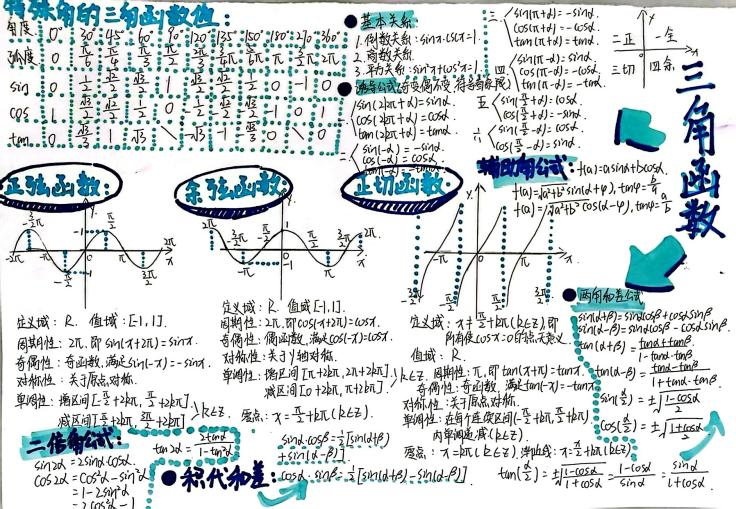 特殊角的三角函数值:
角度 0° 30° 45° 60° 90° 120° 135° 150° 180° 270° 360°
弧度 0 π/6 π/4 π/3 π/2 2π/3 3π/4 5π/6 π 3π/2 2π
sin 0 1/2 √2/2 √3/2 1 √3/2 √2/2 1/2 0 -1 0
cos 1 √3/2 √2/2 1/2 0 -1/2
tan 0 √3/3 1 √3 -√3 -1
基本关系:
1. 倒数关系: sinx·cscx=1.
2. 商数关系:
3. 平方关系: sin²x+cos²x=1.
诱导公式(奇变偶不变,符号看象限)
一
sin(2kπ+α)=sinα.
cos(2kπ+α)=cosα.
tan(2kπ+α)=tanα.
二
sin(-α)=-sinα.
cos(-α)=cosα.
tan(-α)=-tanα.
三
sin(π+α)=-sinα.
cos(π+α)=-cosα.
tan(π+α)=tanα.
四
sin(π-α)=sinα.
cos(π-α)=-cosα.
tan(π-α)=-tanα.
五
sin(π/2+α)=cosα.
cos(π/2+α)=-sinα.
六
sin(π/2-α)=cosα.
cos(π/2-α)=sinα.
二正 一全
三切 四余
x
y
三角函数
辅助角公式:
f(α)=asinα+bcosα.
f(α)=√a²+b² sin(α+φ), tanφ=b/a
f(α)=√a²+b² cos(α-φ), tanφ=a/b
正弦函数:
-2π -3/2π -π/2 1 -1 π/2 π 3π/2 2π x
定义域: R. 值域: [-1,1].
周期性: 2π. 即 sin(x+2π)=sinx.
奇偶性: 奇函数.满足sin(-x)=-sinx.
对称性: 关于原点对称.
单调性: 增区间[-π/2+2kπ, π/2+2kπ].
减区间[π/2+2kπ, 3π/2+2kπ]. k∈Z.
余弦函数:
-3/2π -π -π/2 1 -1 π/2 π 3/2π 2π x
定义域: R. 值域[-1,1].
周期性: 2π,即cos(x+2π)=cosx.
奇偶性: 偶函数.满足cos(-x)=cosx.
对称性: 关于y轴对称.
单调性: 增区间[π+2kπ, 2π+2kπ].
减区间[0+2kπ, π+2kπ]. k∈Z.
零点: x=π/2+kπ(k∈Z).
正切函数:
-3π/2 -π/2 π/2 3π/2 x
定义域: x≠π/2+kπ(k∈Z),即
所有使cosx=0的点无意义.
值域: R.
周期性: π,即tan(x+π)=tanx
奇偶性: 奇函数.满足tan(-x)=-tanx
对称性: 关于原点对称.
单调性: 在每个连续区间(-π/2+kπ, π/2+kπ)
内单调递减(k∈Z).
零点: x=kπ(k∈Z). 渐近线: x=π/2+kπ(k∈Z)
两角和差公式
sin(α+β)=sinαcosβ+cosαsinβ
sin(α-β)=sinαcosβ-cosαsinβ.
tan(α+β)=tanα+tanβ/1-tanα·tanβ
tan(α-β)=tanα-tanβ/1+tanα·tanβ
sin(α/2)=±√1-cosα/2
cos(α/2)=±√1+cosα/2
tan(α/2)=±√1-cosα/1+cosα=1-cosα/sinα=sinα/1+cosα
二倍角公式:
sin2α=2sinα·cosα.
cos2α=cos²α-sin²α
=1-2sin²α
=2cos²α-1
tan2α=2tanα/1-tan²α
积化和差:
sinα·cosβ=1/2[sin(α+β)
+sin(α-β)].
cosα·sinβ=1/2[sin(α+β)-sin(α-β)]